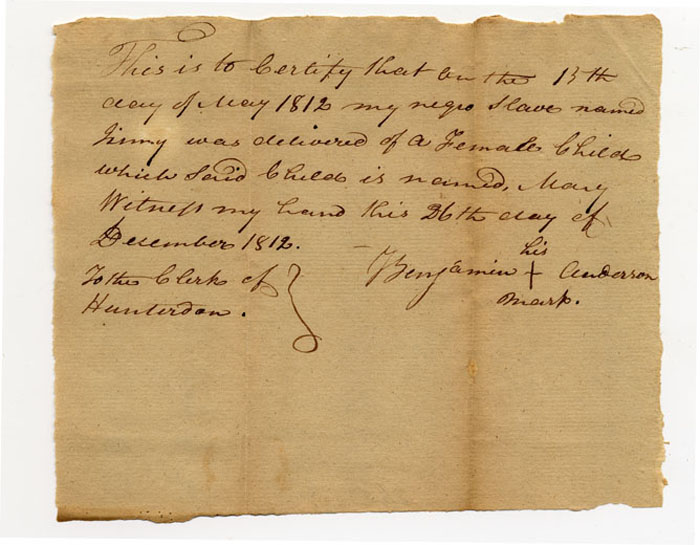 This is to Certify that on the 13th
day of May 1812 my negro slave named
Jinny was delivered of a Female Child
which said Child is named, Mary
Witness my hand this 26th day of
Desember 1812. — his
To the Clerk of Benjamin + Anderson
Hunterdon. mark.